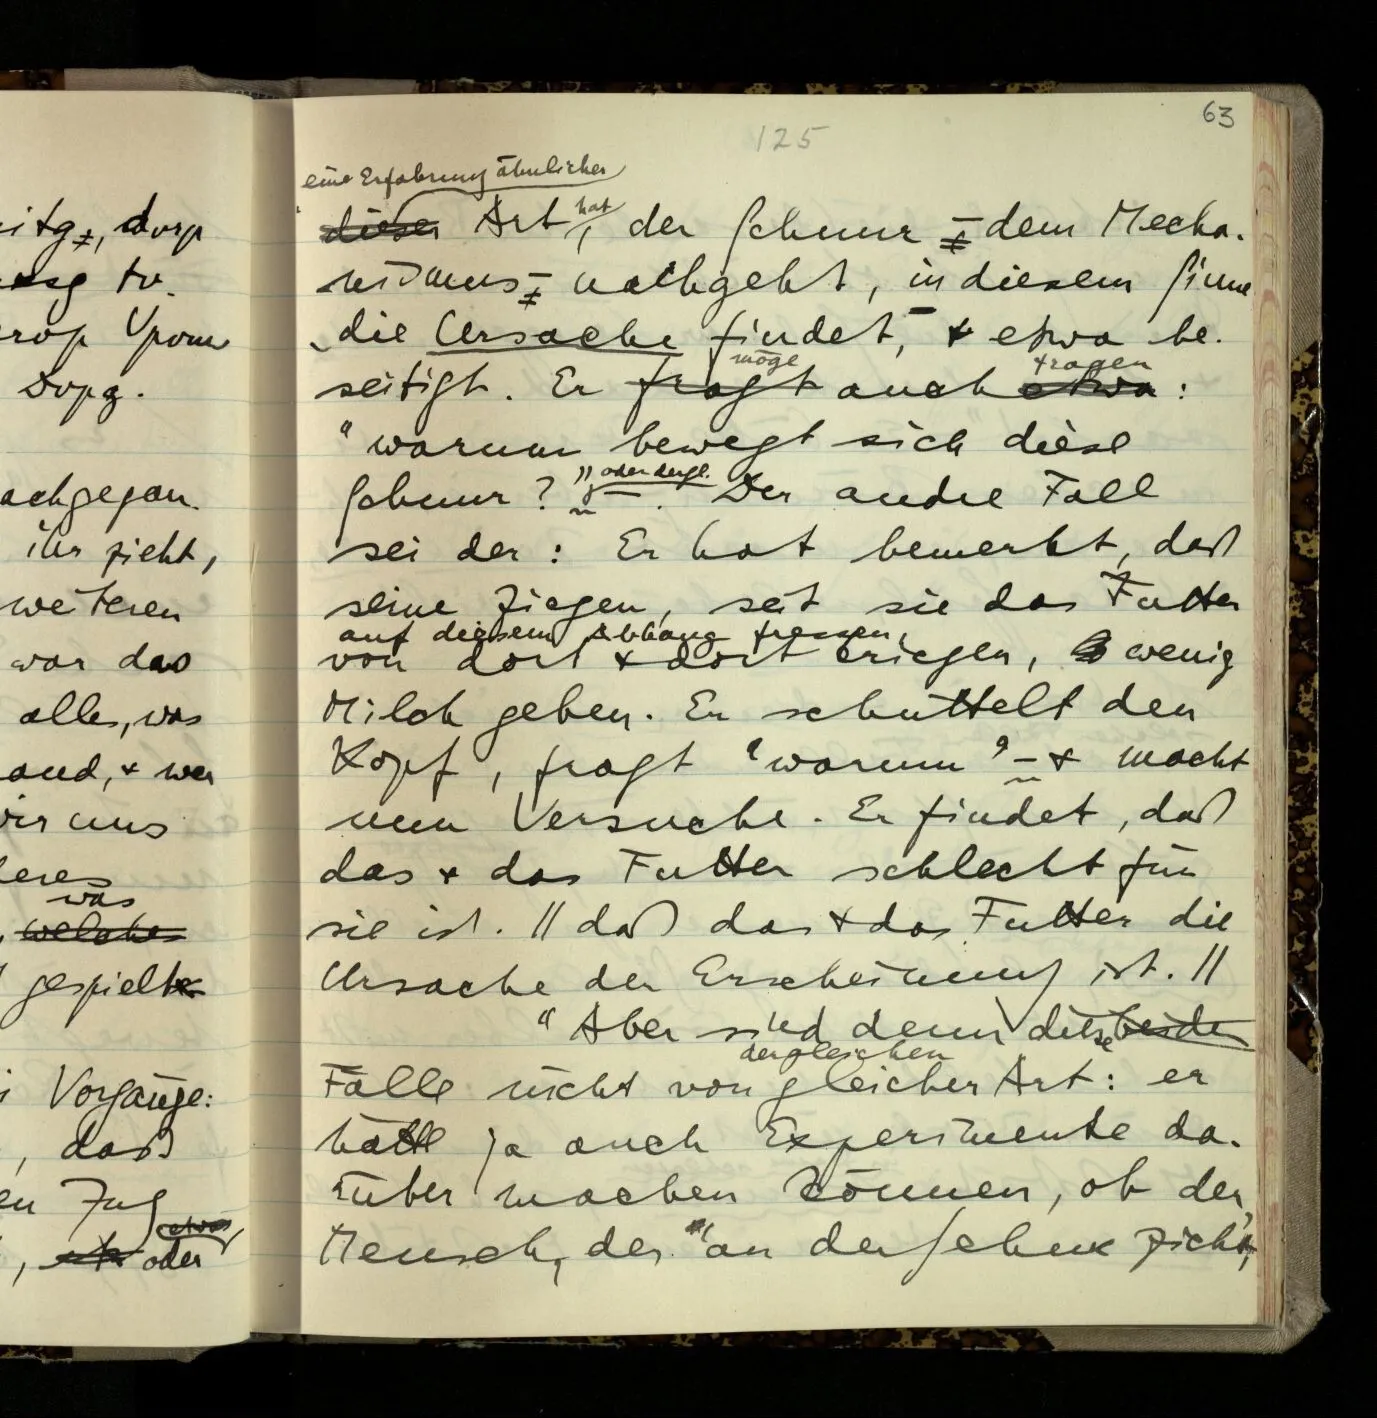 63
125
eine Erfahrung ähnlicher
dieser Art hat, der Schnur – dem Mecha-
nismus – nachgeht, in diesem Sinne
die Ursache findet, + etwa be-
seitigt. Er fragt möge auch etwa fragen:
"warum bewegt sich diese
Schnur?" oder dergl. – . Der andre Fall
sei der: Er hat bemerkt, daß
seine Ziegen, seit sie das Futter
auf diesem Abhang fressen,
von dort + dort kriegen, wenig
Milch geben. Er schüttelt den
Kopf, fragt "warum" – + macht
nun Versuche. Er findet, daß
das + das Futter schlecht für
sie ist. // daß das + das Futter die
Ursache der Erscheinung ist. //
"Aber sind denn diese beiden
dergleichen
Fälle nicht von gleicher Art: er
hätte ja auch Experimente da-
rüber machen können, ob der
Mensch, der an der Schnur zieht,
itg, dvsp
tv.
rop Vponv
Dvpg.
achgegan-
ihr zieht,
weiteren
war das
alles, was
and, + wer
wir uns
deres
was
welches
gespielt
Vorgänge:
, daß
en Zug
etwas
, oder